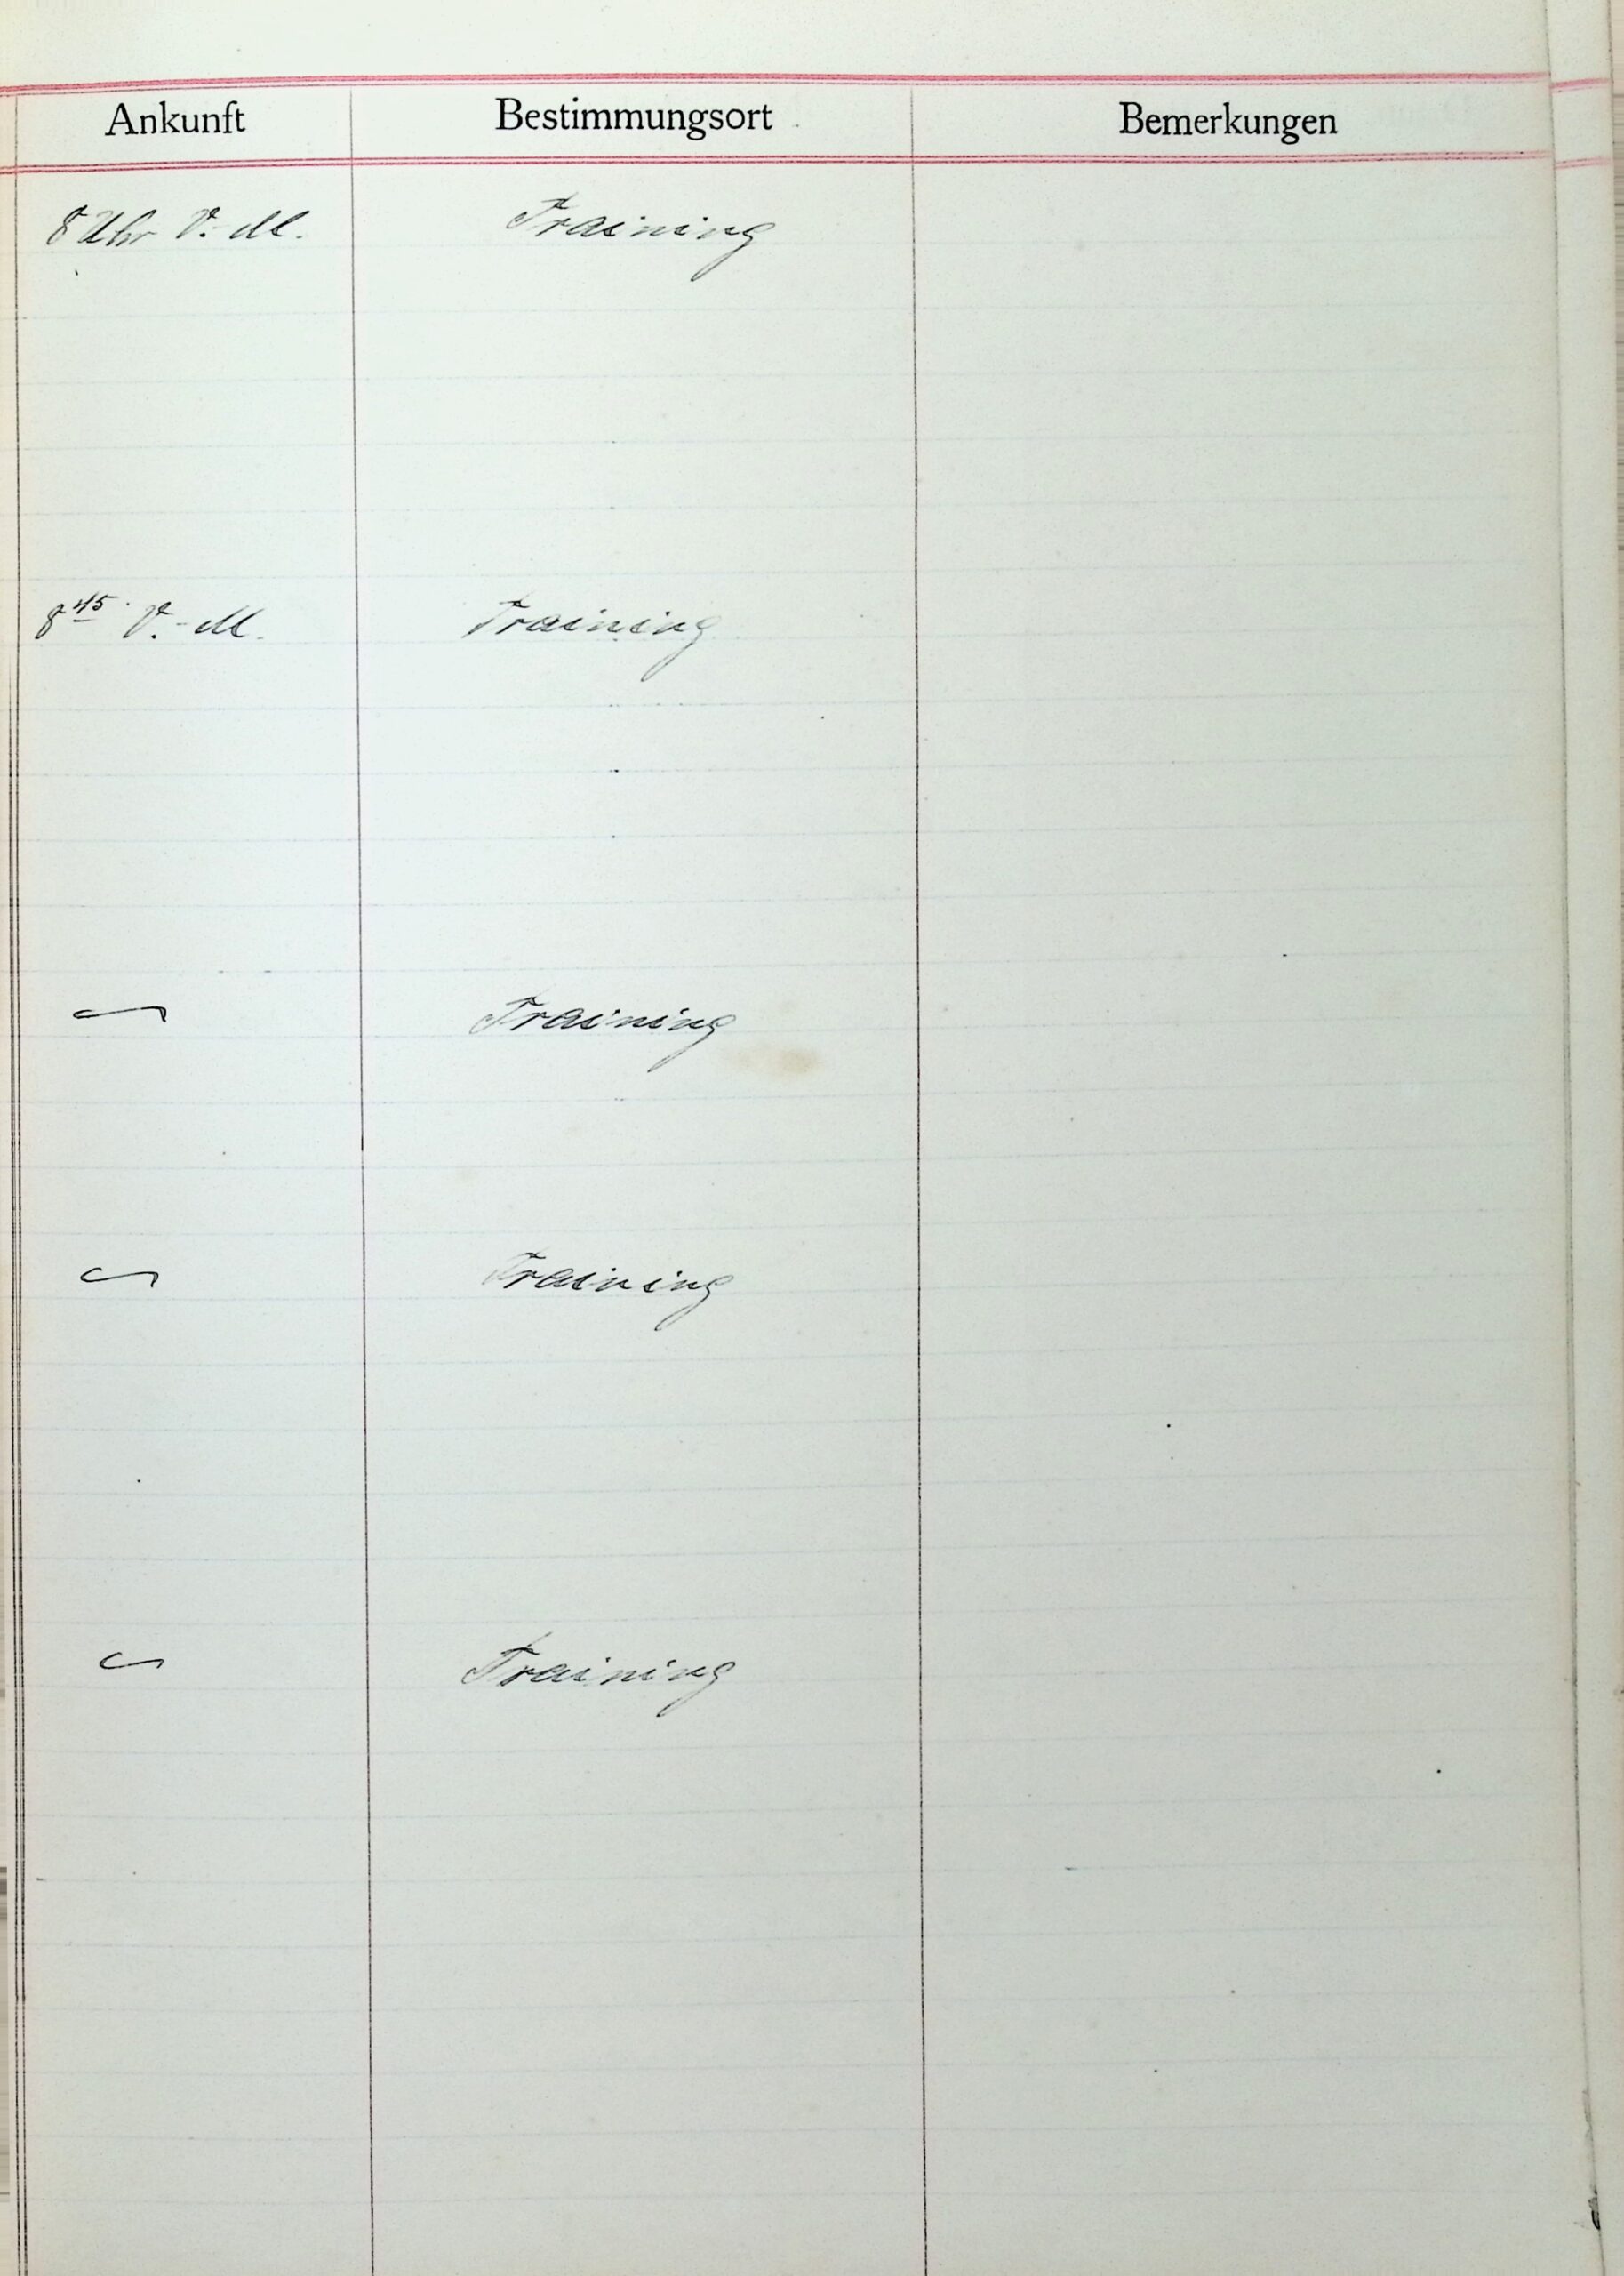 Ankunft Bestimmungsort Bemerkungen
8 Uhr V.-M. Training
8 45 V.-M. Training
Training
Training
Training